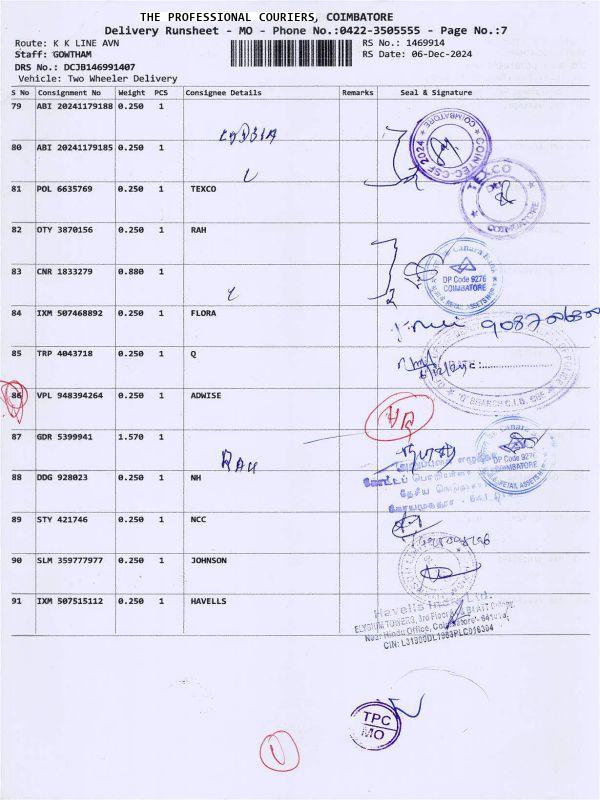 THE PROFESSIONAL COURIERS, COIMBATORE
Delivery Runsheet - MO - Phone No.:0422-3505555 - Page No.:7
Route: K K LINE AVN
Staff: GOWTHAM
DRS No.: DCJB146991407
Vehicle: Two Wheeler Delivery
RS No.: 1469914
RS Date: 06-Dec-2024
S No Consignment No Weight PCS Consignee Details Remarks Seal & Signature
79 ABI 20241179188 0.250 1
80 ABI 20241179185 0.250 1
COINTEC-CSF 2024 ★ COIMBATORE ★
81 POL 6635769 0.250 1 TEXCO
TEXCO
COIMBATORE
82 OTY 3870156 0.250 1 RAH
83 CNR 1833279 0.880 1
Canara Bank
DP Code 9276
COIMBATORE
84 IXM 507468892 0.250 1 FLORA
85 TRP 4043718 0.250 1 Q
86 VPL 948394264 0.250 1 ADWISE
87 GDR 5399941 1.570 1
RAH
Canara Bank
DP Code 9276
COIMBATORE
88 DDG 928023 0.250 1 NH
89 STY 421746 0.250 1 NCC
90 SLM 359777977 0.250 1 JOHNSON
91 IXM 507515112 0.250 1 HAVELLS
Havells India Ltd.
ELYSIUM TOWERS, 3rd Floor
Near Hindu Office, Coimbatore
TPC
MO